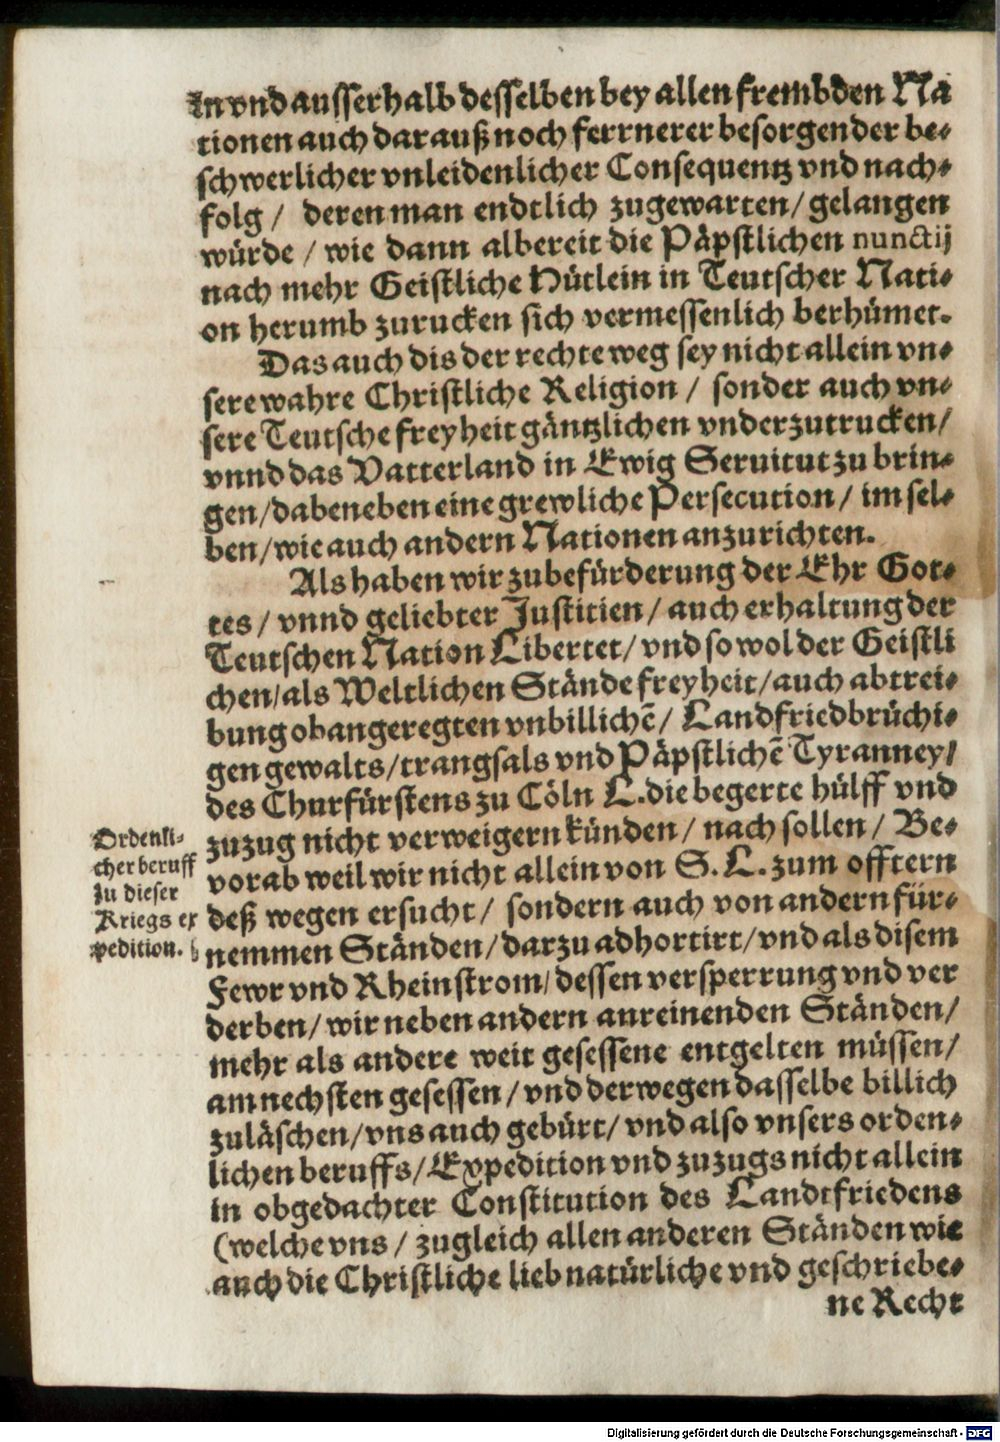 in vnd ausserhalb desselben bey allen frembden Na
tionen auch darauß noch ferrnerer besorgender be-
schwerlicher vnleidenlicher Consequentz vnd nach-
folg / deren man endtlich zugewarten / gelangen
würde / wie dann albereit die Päpstlichen nunctij
nach mehr Geistliche Hütlein in Teutscher Nati-
on herumb zurucken sich vermessenlich berhümet.
Das auch dis der rechte weg sey nicht allein vn-
sere wahre Christliche Religion / sonder auch vn-
sere Teutsche freyheit gäntzlichen vnderzutrucken /
vnnd das Vatterland in Ewig Seruitut zu brin-
gen / dabeneben eine grewliche Persecution / im sel-
ben / wie auch andern Nationen anzurichten.
Als haben wir zubefürderung der Ehr Got-
tes / vnnd geliebter Justitien / auch erhaltung der
Teutschen Nation Libertet / vnd so wol der Geistli
chen / als Weltlichen Stände freyheit / auch abtrei-
bung obangeregten vnbillichē / Landfriedbrüchi-
gen gewalts / trangsals vnd Päpstlichē Tyranney /
des Churfürstens zu Cöln L. die begerte hülff vnd
zuzug nicht verweigern künden / nach sollen / Be-
vorab weil wir nicht allein von S. L. zum offtern
deß wegen ersucht / sondern auch von andern für-
nemmen Ständen / darzu adhortirt / vnd als disem
Fewr vnd Rheinstrom / dessen versperrung vnd ver
derben / wir neben andern anreinenden Ständen /
mehr als andere weit gesessene entgelten müssen /
am nechsten gesessen / vnd derwegen dasselbe billich
zuläschen / vns auch gebürt / vnd also vnsers orden-
lichen beruffs / Expedition vnd zuzugs nicht allein
in obgedachter Constitution des Landtfriedens
(welche vns / zugleich allen anderen Ständen wie
auch die Christliche lieb natürliche vnd geschriebe-
ne Recht
Ordenli-
cher beruff
zu dieser
Kriegs ex
pedition. b
Digitalisierung gefördert durch die Deutsche Forschungsgemeinschaft - DFG